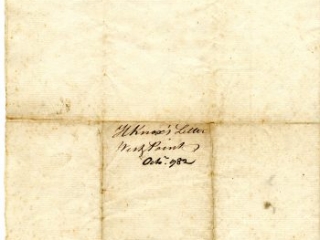 H Knox's Letter
West Point
Octr. 982